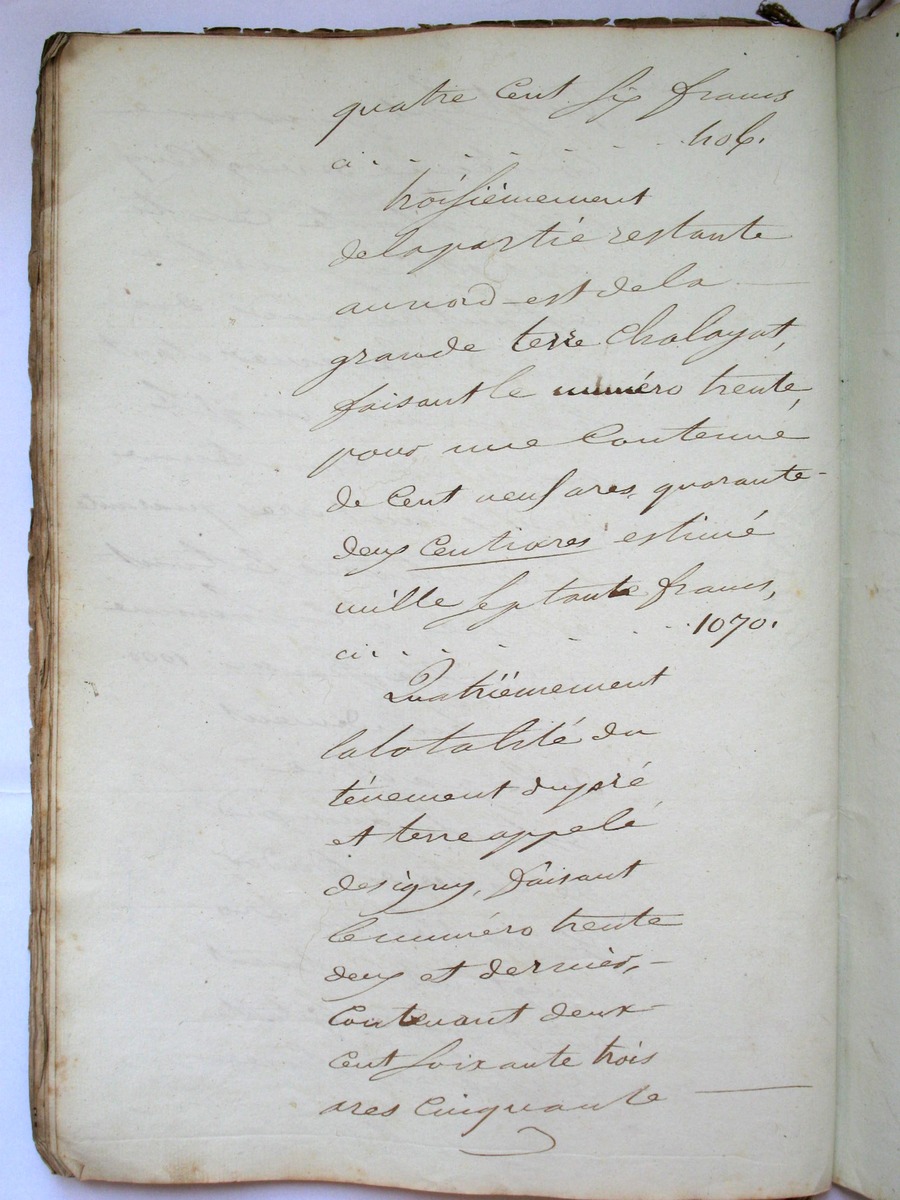 quatre cent six francs
ci . . . . . . . . 406.
troisièmement
de la partie restante
au nord-est de la —
grande terre Chalayat,
faisant le numéro trente,
pour une contenue
de cent neuf ares, quarante-
deux centiares estimé
mille septante francs,
ci . . . . . . . 1070.
Quatrièmement
la totalité du
ténement du pré
et terre appelé
des igny, faisant
le numéro trente
deux et dernier, —
contenant deux-
cent soixante trois
ares cinquante —